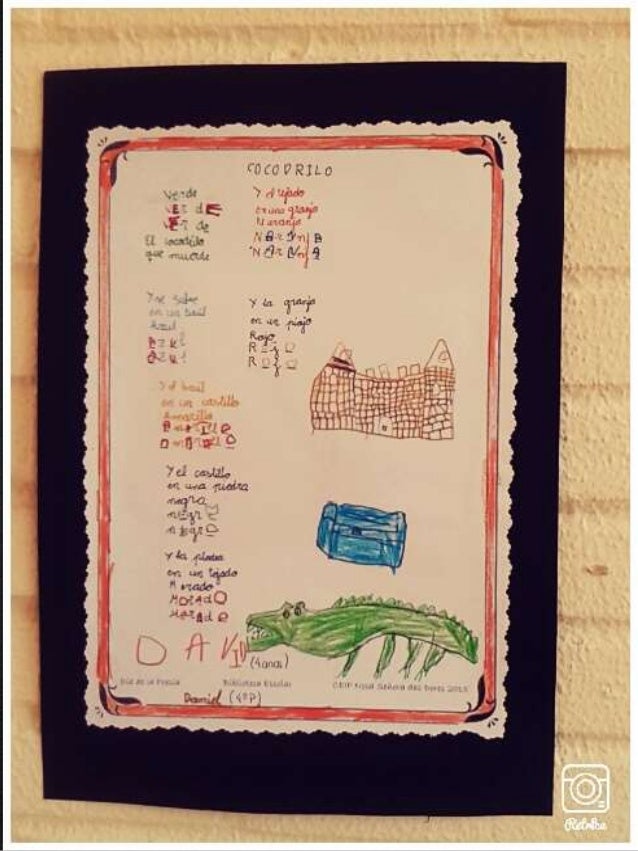 COCODRILO
Verde
VERdE
VERde
El cocodrilo
que muerde
Y se sube
en un baúl
Azul
AZUL
AZUL
Y el baúl
en un castillo
Amarillo
Y el castillo
en una piedra
negra
nEgr
nEgr
Y la piedra
en un tejado
Morado
MORAdO
MORAd
Y el tejado
en una granja
Naranja
NARAnjA
NARAnjA
Y la granja
en un piojo
Rojo
Rojo
Rojo
DAVID
(4 anos)
Día de la Poesía Biblioteca Escolar CEIP Nosa Señora das Dores 2015
Daniel (4ºP)
Retrica